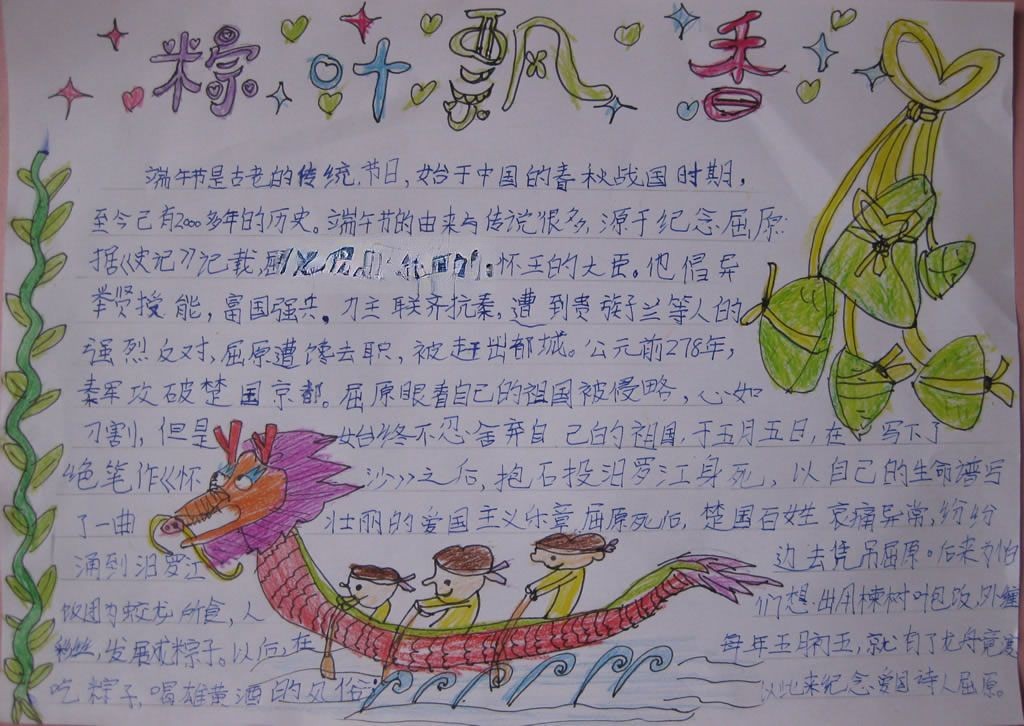 粽叶飘香
端午节是古老的传统节日,始于中国的春秋战国时期,
至今已有2000多年的历史。端午节的由来与传说很多,源于纪念屈原
据《史记》记载,怀王的大臣。他倡导
举贤授能,富国强兵。力主联齐抗秦,遭到贵族子兰等人的
强烈反对,屈原遭馋去职,被赶出都城。公元前278年,
秦军攻破楚国京都。屈原眼看自己的祖国被侵略,心如
刀割,但是始终不忍舍弃自己的祖国,于五月五日,在写下了
绝笔作《怀沙》之后,抱石投汨罗江身死,以自己的生命谱写
了一曲壮丽的爱国主义乐章,屈原死后,楚国百姓哀痛异常,纷纷
涌到汨罗江边去凭吊屈原。后来为怕
饭团为蛟龙所食,人们想出用楝树叶包饭,外缠
彩丝,发展成粽子。以后,在每年五月初五,就有了龙舟竞渡
吃粽子,喝雄黄酒的风俗;以此来纪念爱国诗人屈原。